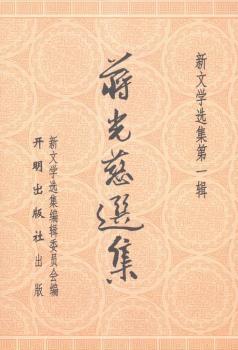 新文学选集第一辑
蒋光慈選集
新文学选集编辑委员会编
开明出版社出版